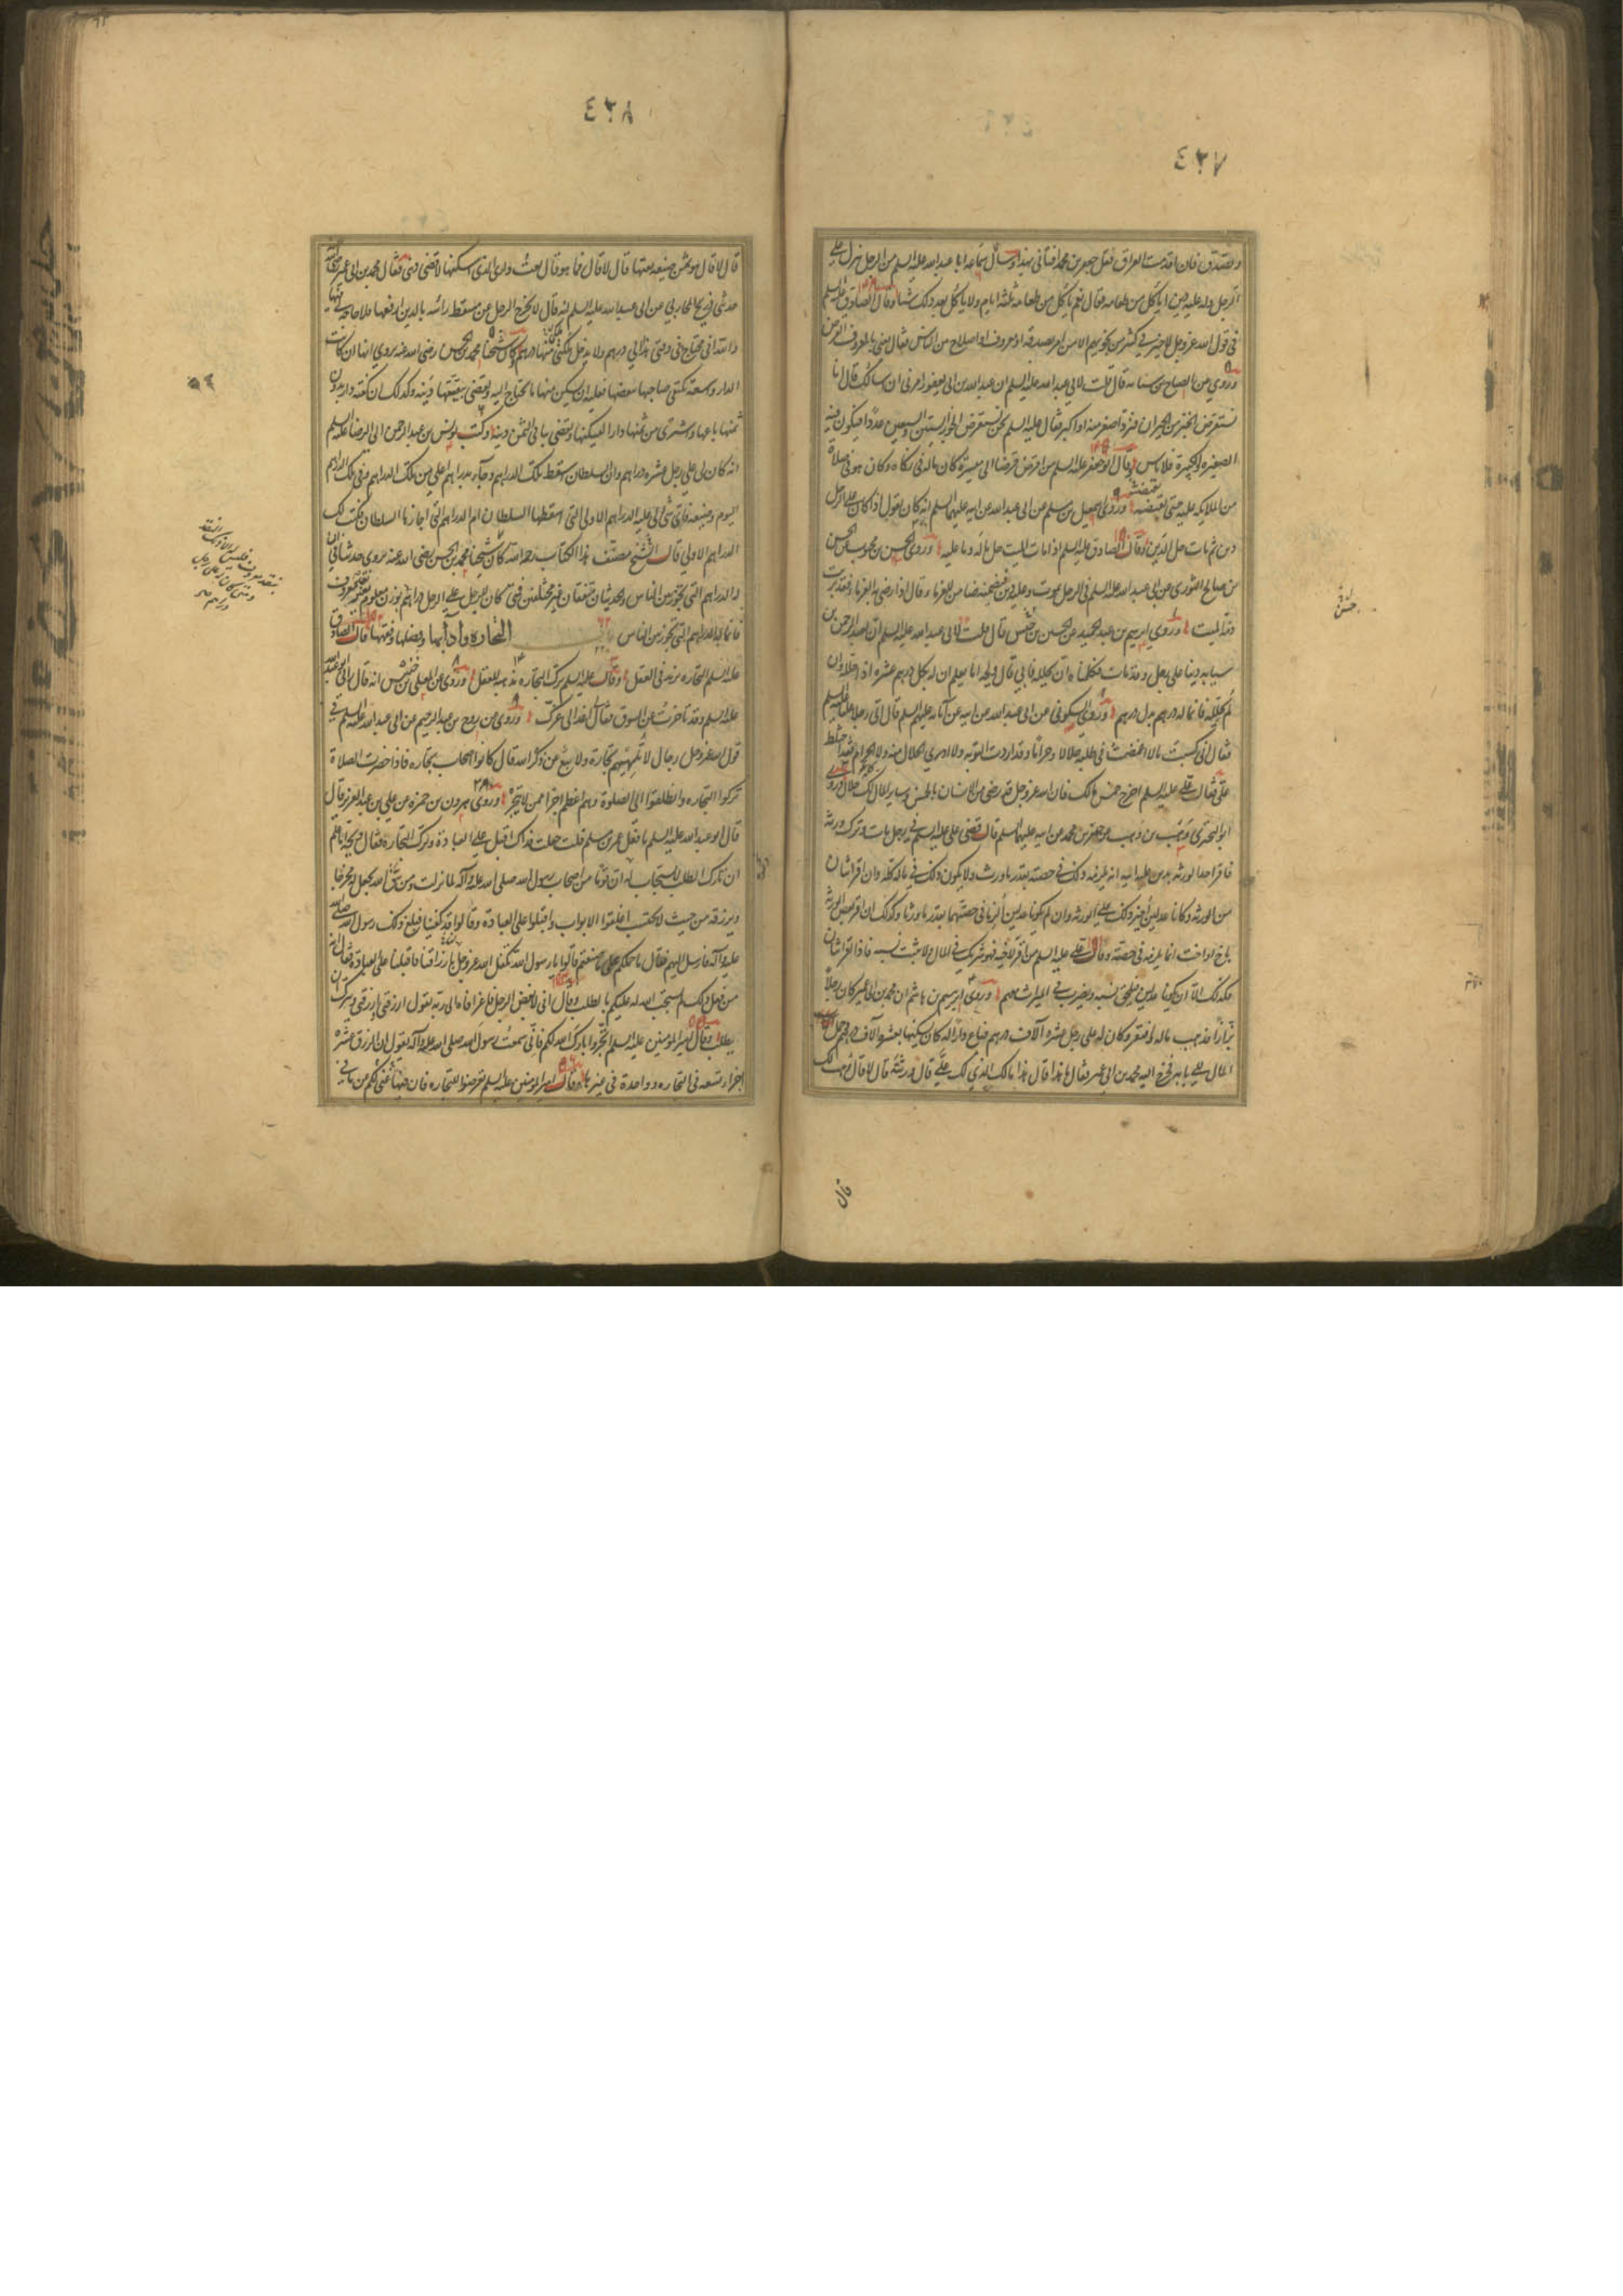 ٤٣٧
وتصدق فان اقدمت العراق فقل جعفر بن محمد افتاني بهذا وسأل سماعة ابا عبد الله عليه السلم عن الرجل ينزل على
الرجل وله عليه دين اياكل من طعامه فقال نعم ياكل من طعامه ثلثه ايام ولا ياكل بعد ذلك شيئا وقال الصادق عليه السلم
في قول الله عز وجل لا خير في كثير من نجويهم الا من امر بصدقة او معروف او اصلاح بين الناس فقال يعني بالمعروف القرض
وروي عن الصباح بن سيابه قال قلت لابي عبد الله عليه السلم ان عبد الله بن ابي يعفور امرني ان اسالك قال انا
نستقرض الخبز من الجيران فنرد اصغر منه او اكبر فقال عليه السلم نحن نستقرض الجوز الستين والسبعين عددا فيكون فيه
الصغيرة والكبيرة فلا باس وقال ابو جعفر عليه السلم من اقرض قرضا الى ميسرة كان ماله في زكاه وكان هو في صلاة
من الملايكه عليه حتى يقبضه وروى اسمعيل بن مسلم عن ابي عبد الله عن ابيه عليهما السلم انه كان يقول اذا كان على الرجل
دين ثم مات حل الدين وقال الصادق عليه السلم اذا مات الميت حل ماله وما عليه وروى الحسن بن محبوب عن الحسن
بن صالح الثوري عن ابي عبد الله عليه السلم في الرجل يموت وعليه دين فيضمنه ضامن للغرماء قال اذا رضي به الغرماء فقد برئت
ذمة الميت وروى ابرهيم بن عبد الحميد عن الحسن بن خنيس قال قلت لابي عبد الله عليه السلم ان لعبد الرحمن بن
سيابه دينا على رجل وقد مات فكلمناه ان يحلله فابى قال ويحه اما يعلم ان له بكل درهم عشره اذا حلله وان
لم يحلله فانما له درهم بدل درهم وروى السكوني عن ابي عبد الله عن ابيه عن آبائه عليهم السلم قال اتى رجل عليا عليه السلم
فقال اني كسبت مالا اغمضت في طلبه حلالا وحراما وقد اردت التوبه ولا ادري الحلال منه ولا الحرام فقد اختلط
علي فقال علي عليه السلم اخرج خمس مالك فان الله عز وجل قد رضي من الانسان بالخمس وساير المال لك حلال وروى
ابو البختري وهب بن وهب عن جعفر بن محمد عن ابيه عليهما السلم قال قضى علي عليه السلم في رجل مات وترك ورثه
فاقر احد الورثه بدين على ابيه انه يلزمه ذلك في حصته بقدر ما ورث ولا يكون ذلك في ماله كله وان اقر اثنان
من الورثه وكانا عدلين اجيز ذلك على الورثه وان لم يكونا عدلين الزما في حصتهما بقدر ما ورثا وكذلك ان اقر بعض الورثه
باخ او اخت انما يلزمه في حصته وقال علي عليه السلم من اقر لاخيه فهو شريك في المال ولا يثبت نسبه فاذا اقر اثنان
فكذلك الا ان يكونا عدلين فيلحق نسبه ويضرب في الميراث معهم وروى ابرهيم بن هاشم ان محمد بن ابي عمير كان رجلا
بزازا فذهب ماله وافتقر وكان له على رجل عشره آلاف درهم فباع دارا له كان يسكنها بعشره آلاف درهم وحمل
المال الى بابه فخرج اليه محمد بن ابي عمير فقال ما هذا قال هذا مالك الذي لك علي قال ورثته قال لا قال وهب لك
قال
٤٣٨
قال لا قال هو ثمن ضيعه بعتها قال لا قال فما هو قال بعت داري التي اسكنها لاقضي ديني فقال محمد بن ابي عمير
حدثني ذريح المحاربي عن ابي عبد الله عليه السلم انه قال لا يخرج الرجل من مسقط رأسه بالدين ارفعها فلا حاجة لي فيها
والله اني محتاج في وقتي هذا الى درهم ولا يدخل ملكي منها درهم وكان شيخنا محمد بن الحسن رضي الله عنه يروي انها ان كانت
الدار واسعة يكتفي صاحبها ببعضها فعليه ان يسكن منها ما يحتاج اليه ويقضي ببقيتها دينه وكذلك ان كفته دار بدون
ثمنها باعها واشترى من ثمنها دارا ليسكنها ويقضي بباقي الثمن دينه وكتب يونس بن عبد الرحمن الى الرضا عليه السلم
انه كان لي على رجل عشره دراهم وان السلطان اسقط تلك الدراهم وجاءت دراهم اعلى من تلك الدراهم وفي تلك الدراهم
اليوم وضيعه فاي شي لي عليه الدراهم الاولى التي اسقطها السلطان ام الدراهم التي اجازها السلطان فكتب لك
الدراهم الاولى قال الشيخ مصنف هذا الكتاب رحمه الله كان شيخنا محمد بن الحسن رضي الله عنه يروي حديثا في ان
له الدراهم التي تجوز بين الناس والحديثان متفقان غير مختلفين فمتى كان للرجل على الرجل دراهم بوزن معلوم بغير نقد معروف
فانما له الدراهم التي تجوز بين الناس باب التجاره وآدابها وفضلها وفقهها قال الصادق
عليه السلم التجاره تزيد في العقل وقال عليه السلم ترك التجاره مذهبه للعقل وروى عن المعلى بن خنيس انه قال رآني ابو عبد الله
عليه السلم وقد تاخرت عن السوق فقال اغد الى عزك وروي عن روح بن عبد الرحيم عن ابي عبد الله عليه السلم في
قول الله عز وجل رجال لا تلهيهم تجارة ولا بيع عن ذكر الله قال كانوا اصحاب تجاره فاذا حضرت الصلاة
تركوا التجاره وانطلقوا الى الصلوة وهم اعظم اجرا ممن لا يتجر وروى هرون بن حمزه عن علي بن عبد العزيز قال
قال ابو عبد الله عليه السلم ما فعل عمر بن مسلم قلت جعلت فداك اقبل على العبادة وترك التجاره فقال ويحه اما علم
ان تارك الطلب لا يستجاب له ان قوما من اصحاب رسول الله صلى الله عليه وآله لما نزلت ومن يتق الله يجعل له مخرجا
ويرزقه من حيث لا يحتسب اغلقوا الابواب واقبلوا على العبادة وقالوا قد كفينا فبلغ ذلك رسول الله صلى الله
عليه وآله فارسل اليهم فقال ما حملكم على ما صنعتم قالوا يا رسول الله تكفل الله عز وجل بارزاقنا فاقبلنا على العبادة فقال انه
من فعل ذلك لم يستجب الله له عليكم بالطلب وقال اني لابغض الرجل فاغرا فاه الى ربه يقول ارزقني ارزقني ويترك
الطلب وقال امير المؤمنين عليه السلم اتجروا بارك الله لكم فاني سمعت رسول الله صلى الله عليه وآله يقول ان الرزق عشره
اجزاء تسعه في التجاره وواحدة في غيرها وقال امير المؤمنين عليه السلم تعرضوا للتجاره فان فيها غنى لكم عما في